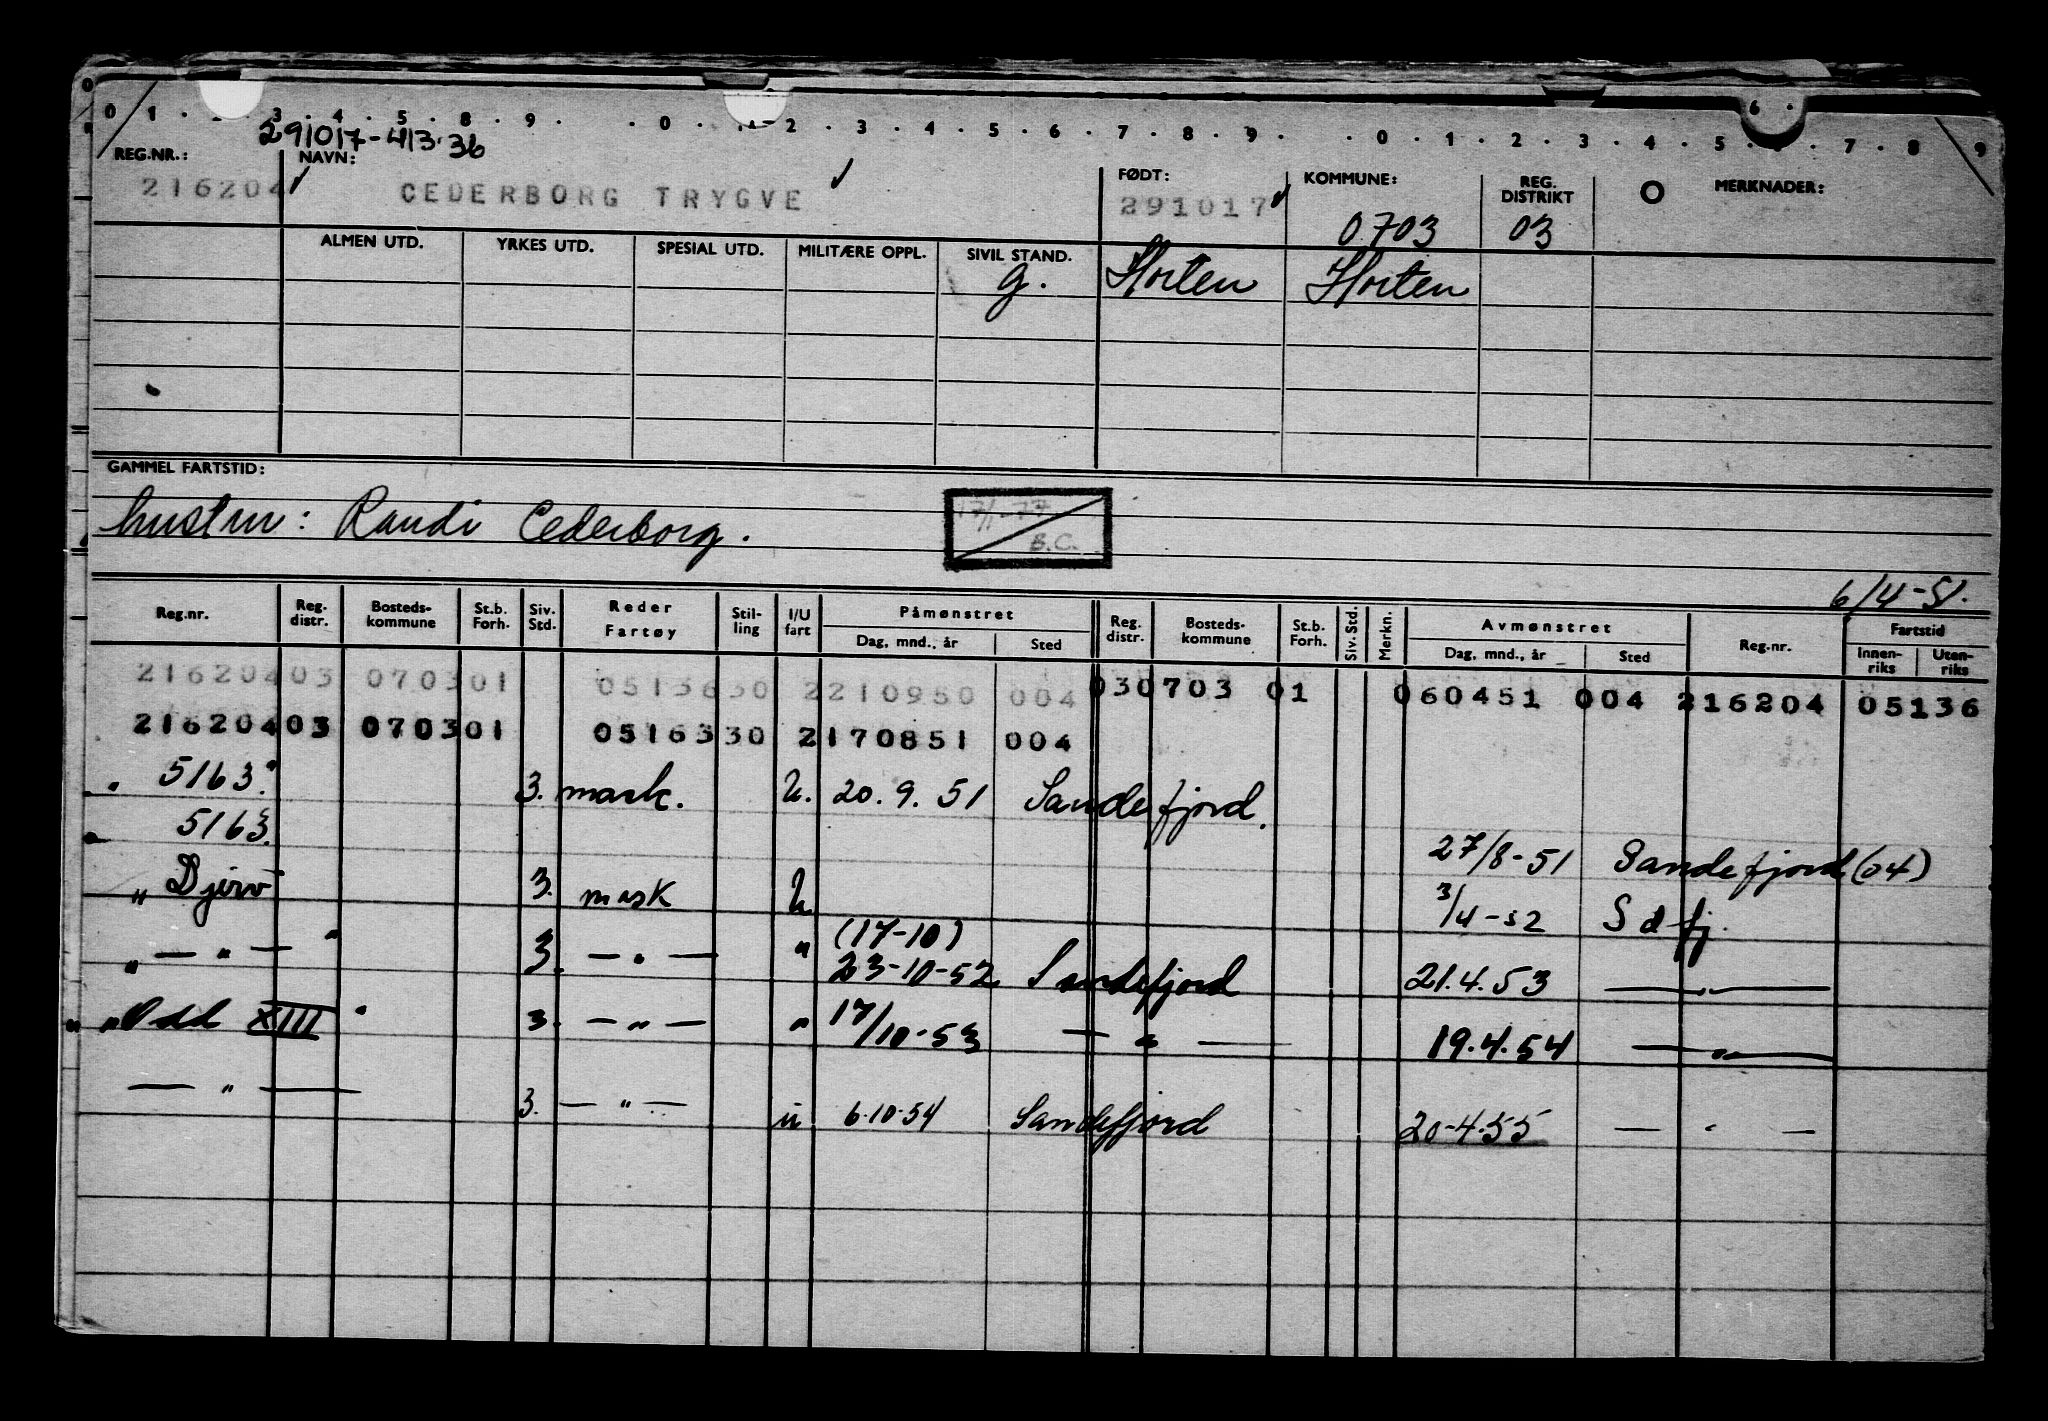 0 1 . 3 . 4 . 5 . 8 . 9 . . 0 . 1 . 2 . 3 . 4 . 5 . 6 . 7 . 8 . 9 . . 0 . 1 . 2 . 3 . 4 . 5 . 6 . 7 . 8 . 9
291017-413.36
REG.NR.: NAVN: FØDT: KOMMUNE: REG. DISTRIKT O MERKNADER:
216204 CEDERBORG TRYGVE 291017 0703 03
ALMEN UTD. YRKES UTD. SPESIAL UTD. MILITÆRE OPPL. SIVIL STAND.
g. Horten Horten
GAMMEL FARTSTID:
hustru: Randi Cederborg.
17/1-77
B.C.
6/4-51.
Reg.nr. Reg. distr. Bosteds- kommune St.b. Forh. Siv. Std. Reder Fartøy Stil- ling I/U fart Påmønstret Reg. distr. Bosteds- kommune St.b. Forh. Siv. Std. Merkn. Avmønstret Reg.nr. Fartstid
Dag, mnd., år Sted Dag, mnd., år Sted Innen- riks Uten- riks
216204 03 0703 01 0513630 2 210950 004 03 0703 01 060451 004 216204 05136
216204 03 0703 01 0516330 2 170851 004
" 5163. 3. mask. U. 20.9.51 Sandefjord.
5163. 27/8-51 Sandefjord (04)
" Djerv 3. mask U 3/4-52 Sdfj.
" — " — 3. — " — " (17-10) 23-10-52 Sandefjord 21.4.53 — " —
" Odd XIII " 3. — " — " 17/10-53 — " — 19.4.54 — " —
— " — 3. — " — u 6.10.54 Sandefjord 20-4.55 — " —